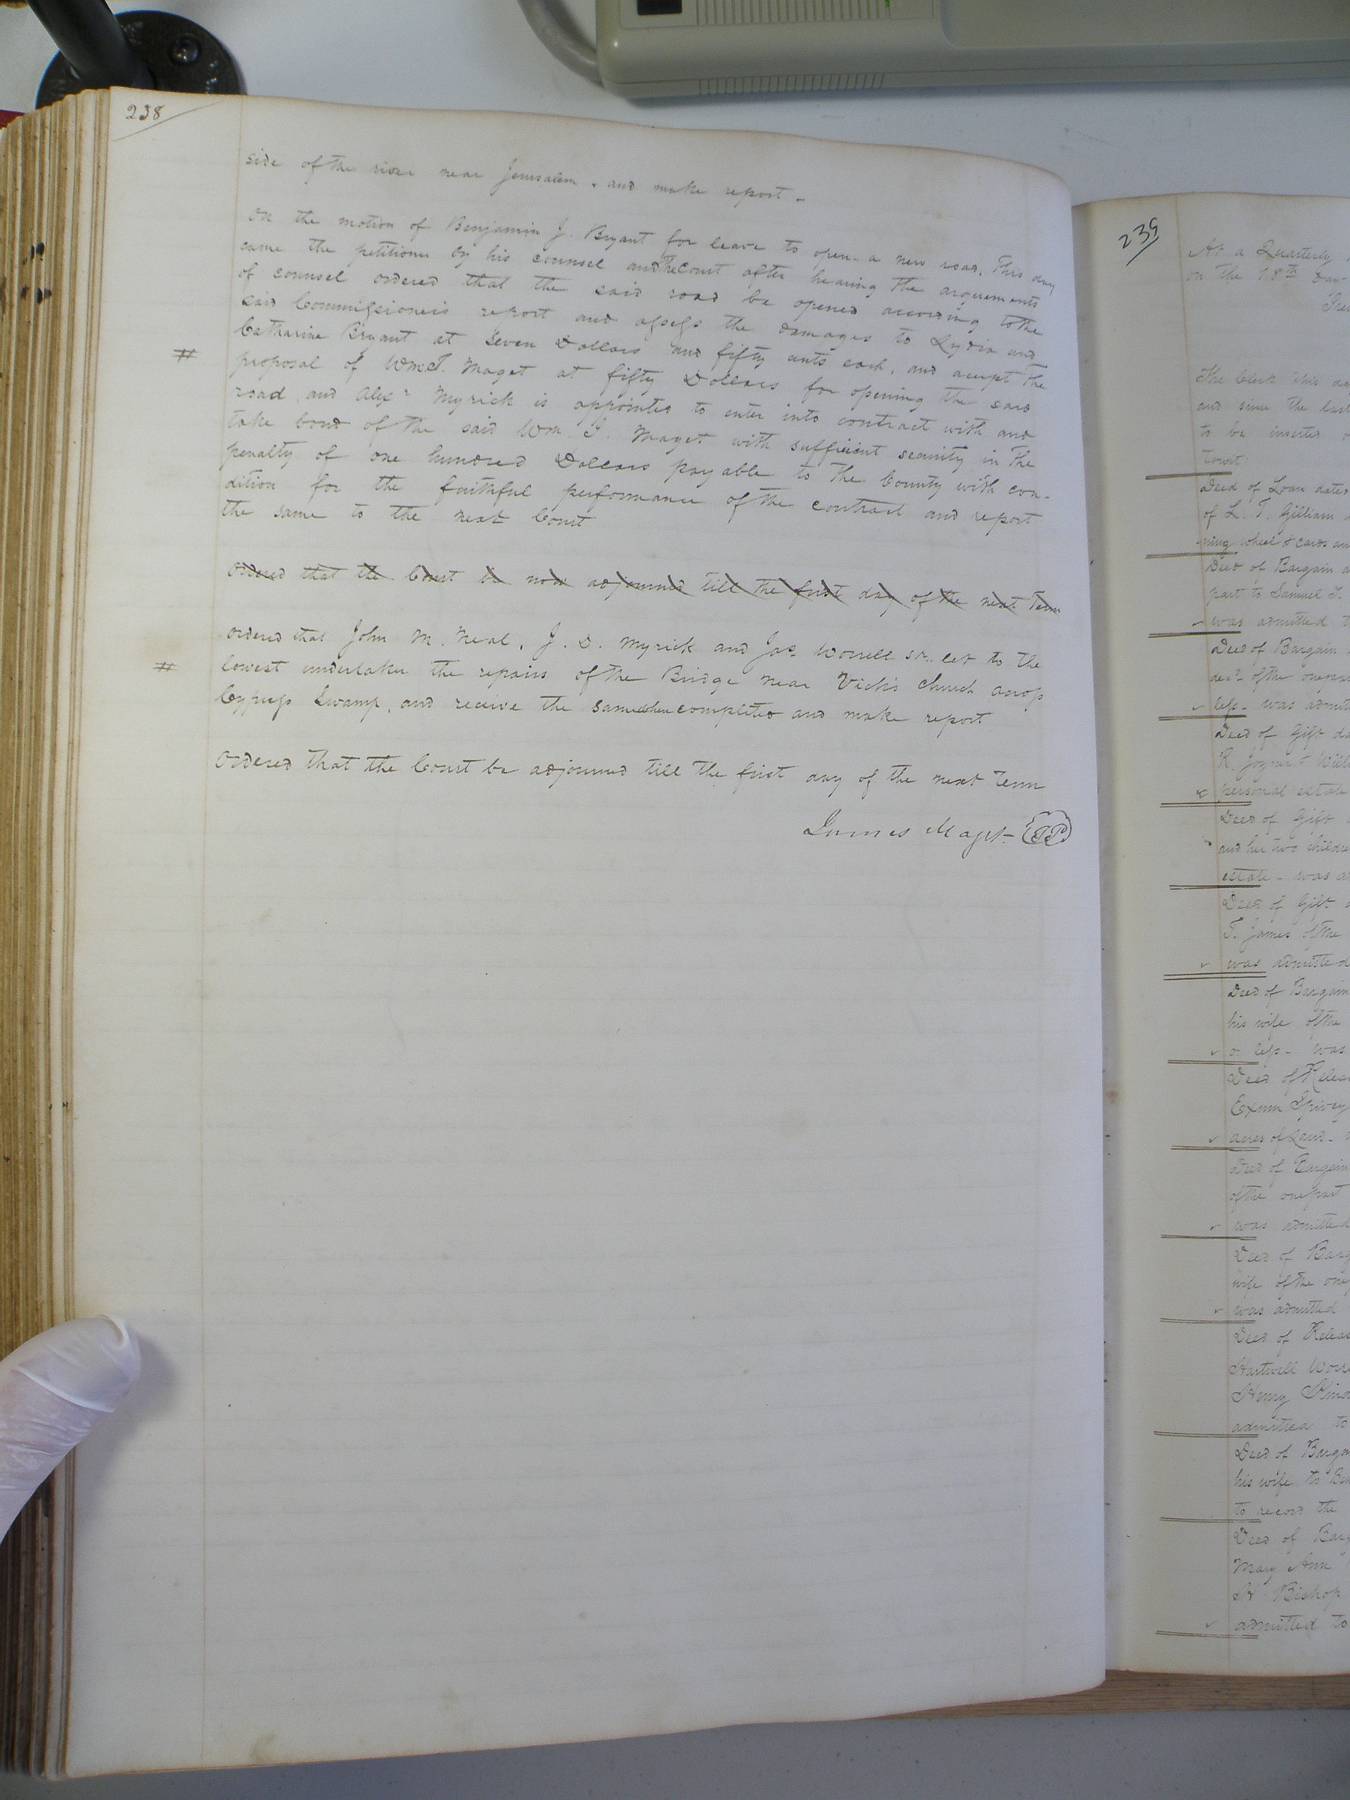 238
side of the river near Jerusalem. and make report.
On the motion of Benjamin J. Bryant for leave to open a new road. This day
came the petitioner by his counsel and the Court after hearing the arguements
of counsel ordered that the said road be opened according to the
said Commissioners report and assess the damages to Lydia and
Catharine Bryant at Seven Dollars and fifty cents each, and accept the
#
proposal of Wm T. Maget at fifty Dollars for opening the said
road and Alexr Myrick is appointed to enter into contract with and
take bond of the said Wm. T. Maget with sufficient security in the
penalty of one hundred Dollars payable to the County with con-
dition for the faithful performance of the contract and report
the same to the next Court
Ordered that the Court be now adjourned till the first day of the next Term
Ordered that John M. Neal, J. D. Myrick and Jas Worrell Sr. let to the
#
lowest undertaker the repairs of the Bridge near Vick's Church across
Cypress Swamp, and receive the same when completed and make report
Ordered that the Court be adjourned till the first day of the next Term
James Maget
239
At a Quarterly
on the 18th Day
The Clerk this day
and since the last
to be inserted
Court
Deed of Loan dated
of L. T. Gilliam
ning wheel & cards an
Deed of Bargain a
part to Samuel T.
was admitted t
Deed of Bargain
of the one par
less - was admit
Deed of Gift da
personal estate
Deed of Gift
and her two childre
estate - was a
Deed of Gift
T. James of the
was admitted
Deed of Bargain
his wife of the
o less - was
Deed of Relea
Exum Spivey
acres of Land -
Deed of Bargain
of the one part
was admitted
Deed of Barg
wife of the one
was admitted
Deed of Releas
Hartwell Worre
Henry
admitted to
Deed of Barga
his wife to B
to record the
Deed of Barg
Mary Ann
Bishop
admitted to